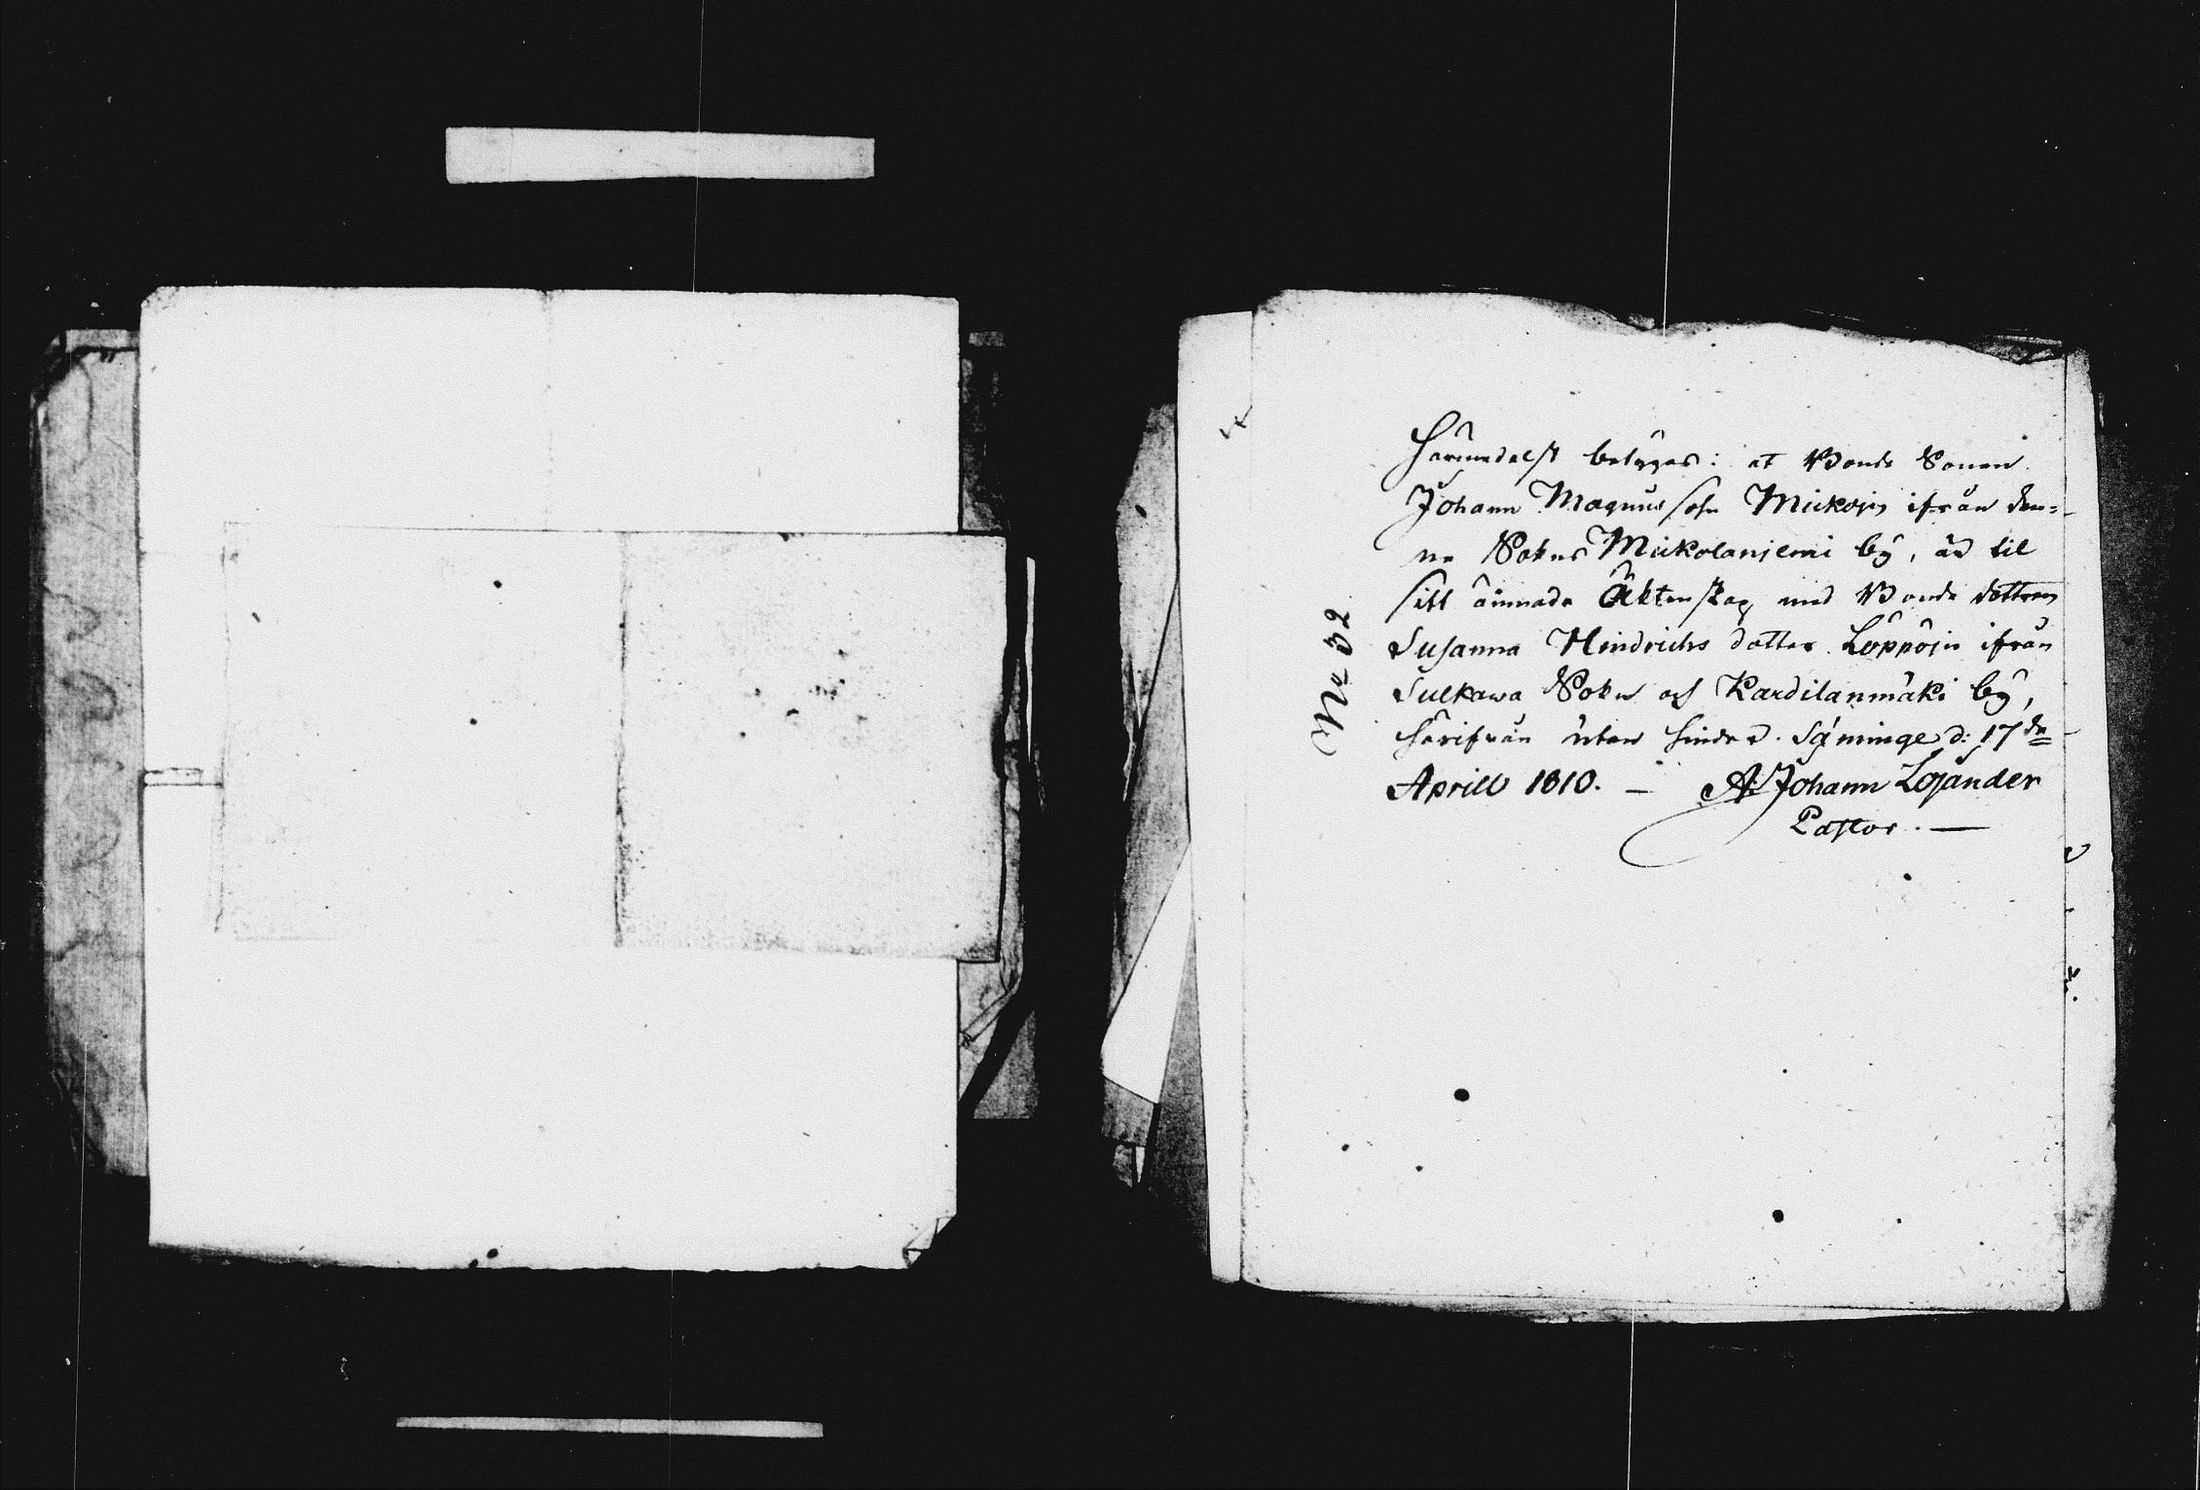 No 32
Härmedelst betygas: at Bonde Sonen
Johann Magnus sohn Mickojn ifrån den=
ne Sokns Mickolaniemi bÿ, är til
sitt ämnade Äktenskap med Bonde dottren
Susanna Hindrichs dotter Löppöjn ifrån
Sulkawa Sokn och Kardilanmäki bÿ,
härifrån utan hinder. Säminge d: 17de
Aprill 1810. — A: Johann Lojander
Pastor. —